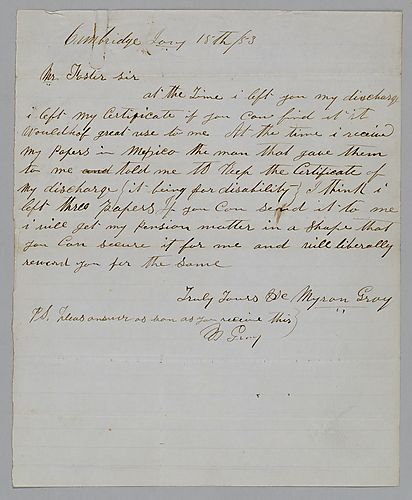 Cambridge Jany 15th/53
Mr. Foster sir
at the time i left you my discharge
i left my Certificate if you can find it it
Would be of great use to me At the time i receive
my Papers in Mexico the man that gave them
to me and told me to Keep the Certificate of
my discharge (it being for disability) I think i
left three Papers, If you Can send it to me
i will get my Pension matter in a Shape that
you Can secure it for me and will liberally
reword you for the same
Truly Yours &c Myron Gray
P.S. Pleas answer as soon as you receive this)
M Gray